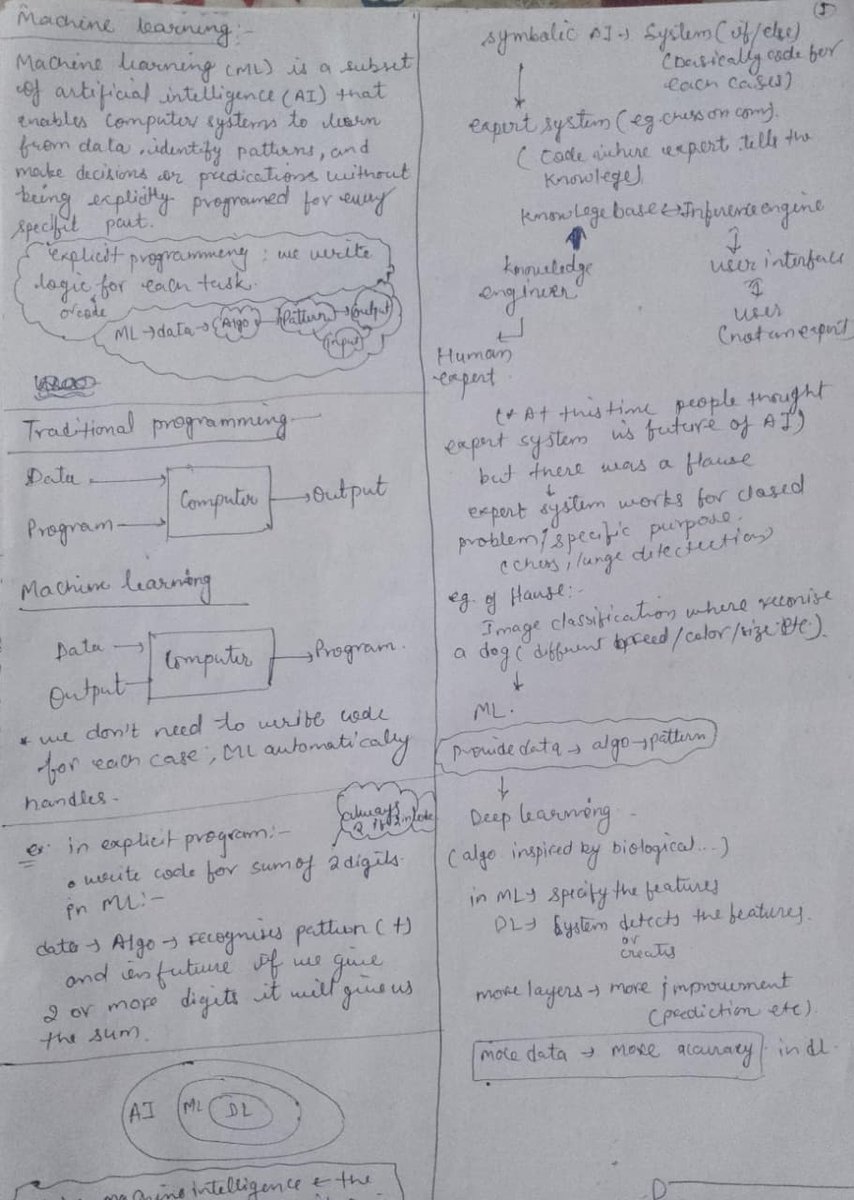 Machine learning:-
Machine learning (ML) is a subset
of artificial intelligence (AI) that
enables computer systems to learn
from data, identify patterns, and
make decisions or predications without
being explicitly programed for every
specifit part.
explicit programming : we write
logic for each task.
or code
ML → data → Algo → Pattern → output
input
Traditional programming
Data
Computer → Output
Program
Machine learning
Data
Computer → Program.
Output
* we don't need to write code
for each case, ML automatically
handles.
always
2
in code
ex. in explicit program:-
• write code for sum of 2 digits.
in ML:-
data → Algo → recognises pattern (+)
and in future if we give
2 or more digits it will give us
the sum.
AI ML DL
machine intelligence & the
(5)
symbolic AI → System (if/else)
(basically code for
each cases)
expert system (eg. chess on com).
( code where expert tells the
knowlege)
knowlege base ↔ Inference engine
knowledge
engineer
user interface
user
(not an expert)
Human
expert
(* At this time people thought
expert system is future of AI)
but there was a flause
expert system works for closed
problem/specific purpose.
(chess, lunge detectection)
eg. of flause:-
Image classification where reconise
a dog ( different breed/color/size etc).
ML.
provide data → algo → pattern
Deep learning
(algo inspired by biological....)
in ML → specify the features
DL → System detects the features.
or
creats
more layers → more improvement
(prediction etc)
more data → more accuracy in dl.